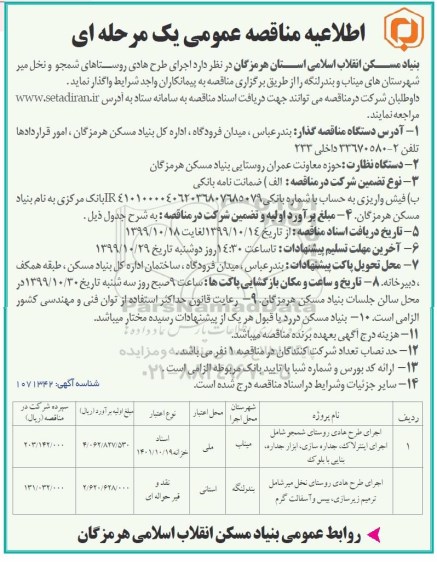 اطلاعیه مناقصه عمومی یک مرحله ای
بنیاد مسکن انقلاب اسلامی استان هرمزگان در نظر دارد اجرای طرح هادی روستاهای شمجو و نخل میر
شهرستان های میناب و بندرلنگه را از طریق برگزاری مناقصه به پیمانکاران واجد شرایط واگذار نماید.
داوطلبان شرکت در مناقصه می توانند جهت دریافت اسناد مناقصه به سامانه ستاد به آدرس www.setadiran.ir
مراجعه نمایند.
۱- آدرس دستگاه مناقصه گذار: بندرعباس، میدان فرودگاه، اداره کل بنیاد مسکن هرمزگان، امور قراردادها
تلفن ۲-۳۳۶۷۰۵۸۰ داخلی ۲۳۳
۲- دستگاه نظارت: حوزه معاونت عمران روستایی بنیاد مسکن هرمزگان
۳- نوع تضمین شرکت در مناقصه: الف) ضمانت نامه بانکی
ب) فیش واریزی به حساب با شماره بانکی IR۴۱۰۱۰۰۰۰۴۰۶۲۰۳۶۸۰۷۶۸۵۰۷۹ بانک مرکزی به نام بنیاد
مسکن هرمزگان. ۴- مبلغ برآورد اولیه و تضمین شرکت در مناقصه: به شرح جدول ذیل.
۵- تاریخ دریافت اسناد مناقصه: از تاریخ ۱۳۹۹/۱۰/۱۴ لغایت ۱۳۹۹/۱۰/۱۸
۶- آخرین مهلت تسلیم پیشنهادات: تا ساعت ۱۴:۳۰ روز دوشنبه تاریخ ۱۳۹۹/۱۰/۲۹
۷- محل تحویل پاکت پیشنهادات: بندرعباس، میدان فرودگاه، ساختمان اداره کل بنیاد مسکن، طبقه همکف
، دبیرخانه. ۸- تاریخ و ساعت و مکان بازگشایی پاکت ها: ساعت ۹ صبح روز سه شنبه تاریخ ۱۳۹۹/۱۰/۳۰ در
محل سالن جلسات بنیاد مسکن هرمزگان. ۹- رعایت قانون حداکثر استفاده از توان فنی و مهندسی کشور
الزامی است. ۱۰- بنیاد مسکن در رد یا قبول هر یک از پیشنهادات رسیده مختار میباشد.
۱۱- هزینه درج آگهی بعهده برنده مناقصه میباشد.
۱۲- حد نصاب تعداد شرکت کنندگان در مناقصه ۱ نفر می باشد.
۱۳- ارائه کد بورس و شماره شبا با تایید بانک مربوطه الزامی است.
۱۴- سایر جزئیات و شرایط در اسناد مناقصه درج شده است.
شناسه آگهی: ۱۰۷۱۳۴۲
ردیف نام پروژه شهرستان محل اجرا محل اعتبار نوع اعتبار مبلغ اولیه برآورد (ریال) سپرده شرکت در مناقصه (ریال)
۱ اجرای طرح هادی روستای شمجو شامل اجرای اینترلاک، جداره سازی، ابزار جداره، بنایی با بلوک میناب ملی اسناد خزانه ۱۴۰۱/۱۰/۱۹ ۴/۰۶۲/۸۲۷/۵۳۰ ۲۰۳/۱۴۲/۰۰۰
اجرای طرح هادی روستای نخل میر شامل ترمیم زیرسازی، بیس و آسفالت گرم بندرلنگه استانی نقد و غیر حواله ای ۲/۶۲۰/۶۲۸/۰۰۰ ۱۳۱/۰۳۲/۰۰۰
روابط عمومی بنیاد مسکن انقلاب اسلامی هرمزگان